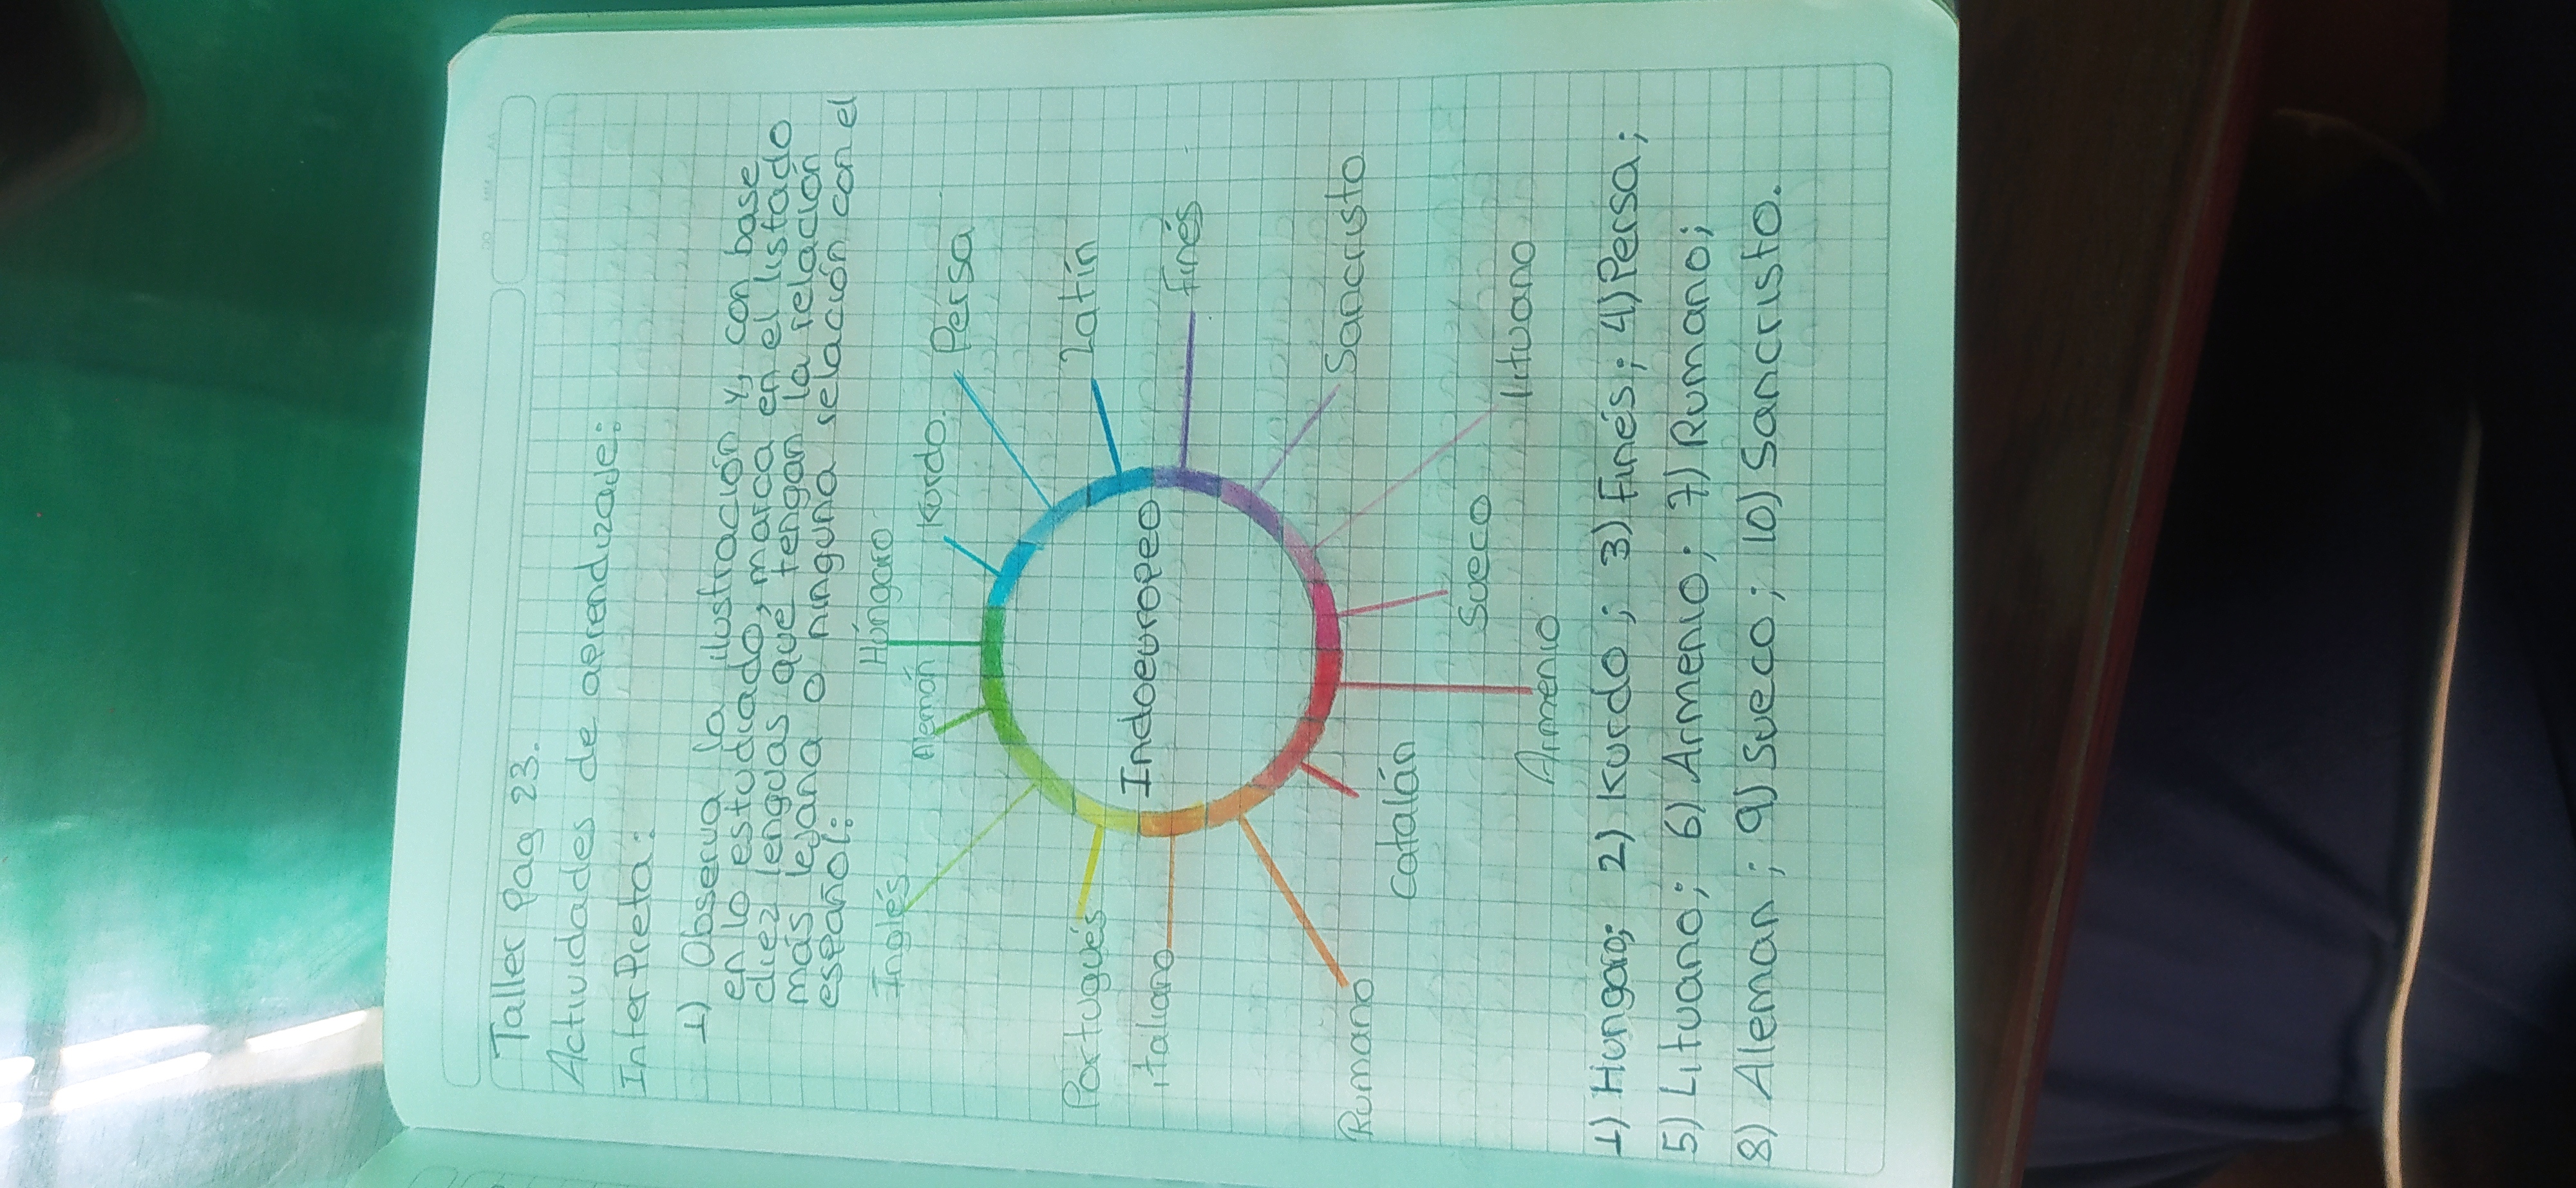 Taller Pag 23.
Actividades de aprendizaje:
InterPreta:
1) Observa la ilustración y, con base
en lo estudiado, marca en el listado
diez lenguas que tengan la relación
más lejana o ninguna relación con el
español:
Húngaro
Inglés
Alemán
Kurdo.
Persa
Portugués
Latín
Indoeuropeo
italiano
Finés
Rumano
Sancristo
Catalán
Sueco
lituano
Armenio
1) Hungaro; 2) Kurdo; 3) Finés; 4) Persa;
5) Lituano; 6) Armenio; 7) Rumano;
8) Aleman; 9) Sueco; 10) Sancristo.